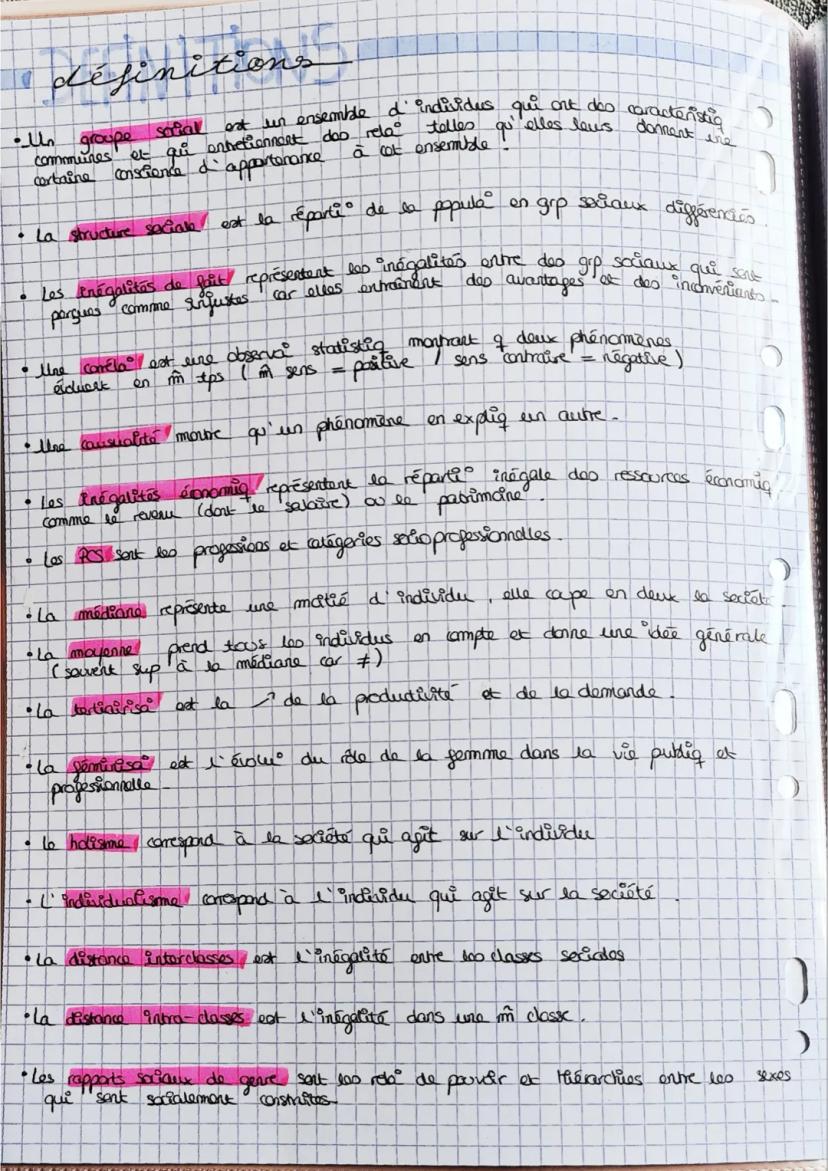 DEFINITIONS
définitions
• Un groupe social est un ensemble d'individus qui ont des caractéristiq
communes et qui entretiennent des rela° telles qu'elles leurs donnent une
certaine conscience d'appartenance à cet ensemble.
• La structure sociale est la réparti° de la popula° en grp sociaux différenciés.
• Les inégalités de fait représentent les inégalités entre des grp sociaux qui sont
perçues comme injustes car elles entraînent des avantages et des inconvénients.
• Une corréla° est une observa° statistiq montrant q deux phénomènes
évoluent en m̂ tps ( m̂ sens = positive / sens contraire = négative )
• Une causualité montre qu'un phénomène en expliq un autre.
• Les inégalités économiq représentent la réparti° inégale des ressources économiq
comme le revenu (dont le salaire) ou le patrimoine.
• Les PCS sont les professions et catégories socioprofessionnelles.
• La médiane représente une moitié d'individu, elle coupe en deux la société.
• La moyenne prend tous les individus en compte et donne une idée générale
( souvent sup à la médiane car ≠ )
• La tertiairisa° est la ↗ de la productivité et de la demande.
• La féminisa° est l'évolu° du rôle de la femme dans la vie publiq et
professionnelle.
• Le holisme correspond à la société qui agit sur l'individu
• L'individualisme correspond à l'individu qui agit sur la société.
• La distance interclasses est l'inégalité entre les classes sociales
• La distance intra-classes est l'inégalité dans une m̂ classe.
• Les rapports sociaux de genre sont les rela° de pouvoir et hiérarchies entre les sexes
qui sont socialement construites.